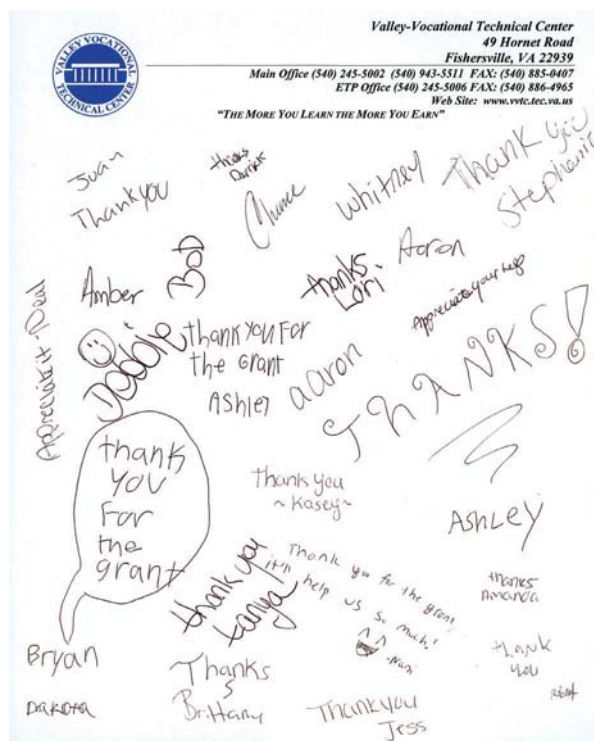 Valley-Vocational Technical Center
49 Hornet Road
Fishersville, VA 22939
Main Office (540) 245-5002 (540) 943-5511 FAX: (540) 885-0407
ETP Office (540) 245-5006 FAX: (540) 886-4965
Web Site: www.vvtc.tec.va.us
"THE MORE YOU LEARN THE MORE YOU EARN"
VALLEY VOCATIONAL
TECHNICAL CENTER
Juan
Thankyou
thanks
Whitney
Thank you
Stephanie
Amber
Bob
thanks
Lori
Aaron
Appreciate your help
Appreciate it -Paul
Debbie
thank you For
the Grant
Ashley
aaron
THANKS!
thank
you
For
the
grant
Bryan
Thank you
~Kasey~
Ashley
thank you
tanya
Thank you for the grant
it'll help us so much!
thanks
Amanda
thank
you
Dakota
Thanks
Brittany
Thankyou
Jess